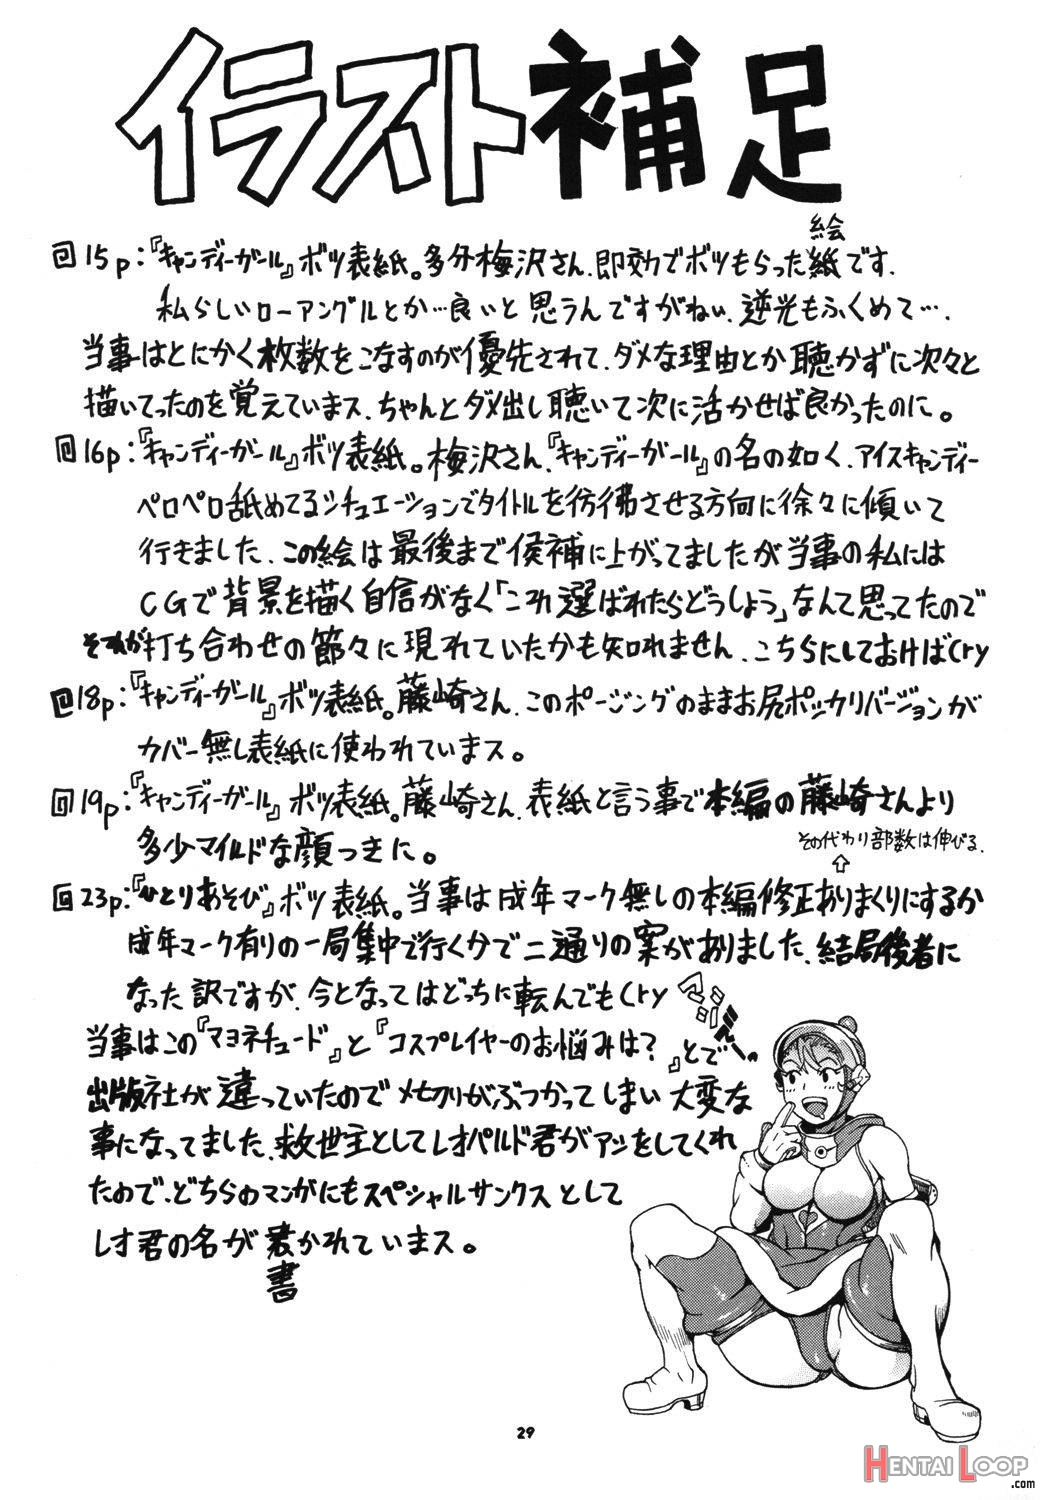 イラスト補足
回15p:『キャンディーガール』ボツ表紙。多分梅沢さん、即効でボツもらった紙です、
絵
私らしいローアングルとか…良いと思うんですがねぃ、逆光もふくめて…、
当事はとにかく枚数をこなすのが優先されて、ダメな理由とか聴かずに次々と
描いてったのを覚えていまス、ちゃんとダメ出し聴いて次に活かせば良かったのに。
回16p:『キャンディーガール』ボツ表紙。梅沢さん、『キャンディーガール』の名の如く、アイスキャンディー
ペロペロ舐めてるシチュエーションでタイトルを彷彿させる方向に徐々に傾いて
行きました、この絵は最後まで候補に上がってましたが当事の私には
CGで背景を描く自信がなく「これ選ばれたらどうしよう」なんて思ってたので
それが打ち合わせの節々に現れていたかも知れません、こちらにしておけばCry
回18p:『キャンディーガール』ボツ表紙。藤崎さん、このポージングのままお尻ポッカリバージョンが
カバー無し表紙に使われていまス。
回19p:『キャンディーガール』ボツ表紙。藤崎さん、表紙と言う事で本編の藤崎さんより
多少マイルドな顔つきに。
その代わり部数は伸びる、
⇧
回23p:『ひとりあそび』ボツ表紙。当事は成年マーク無しの本編修正ありまくりにするか
成年マーク有りの一局集中で行くかで二通りの案がありました、結局後者に
なった訳ですが、今となってはどっちに転んでもCry
当事はこの『マヨネチュード』と『コスプレイヤーのお悩みは?』とで
出版社が違っていたのでメ切りがぶつかってしまい大変な
事になってました、救世主としてレオパルド君がアシをしてくれ
たので、どちらのマンガにもスペシャルサンクスとして
レオ君の名が書かれていまス。
書
マジでーっ
29
HENTAI LOOP
.com